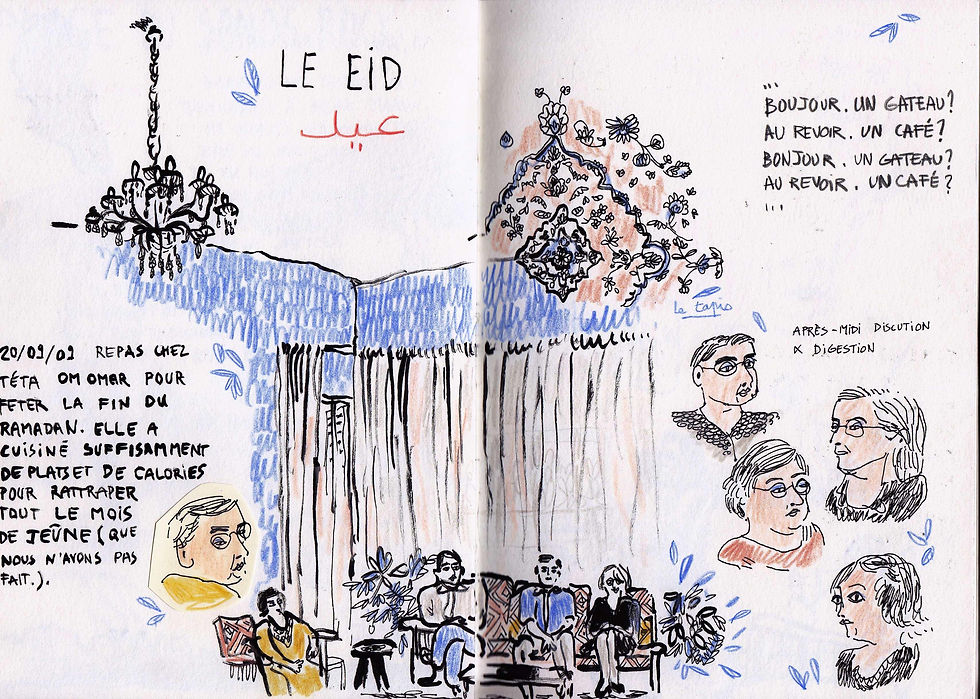 LE EID
عيد
20/09/09 REPAS CHEZ
TÉTA OM OMAR POUR
FETER LA FIN DU
RAMADAN. ELLE A
CUISINÉ SUFFISAMMENT
DE PLATS ET DE CALORIES
POUR RATTRAPER
TOUT LE MOIS
DE JEÛNE (QUE
NOUS N'AVONS PAS
FAIT.).
...
BOUJOUR. UN GATEAU?
AU REVOIR. UN CAFÉ?
BONJOUR. UN GATEAU?
AU REVOIR. UN CAFÉ?
...
le tapis
APRÈS-MIDI DISCUTION
& DIGESTION